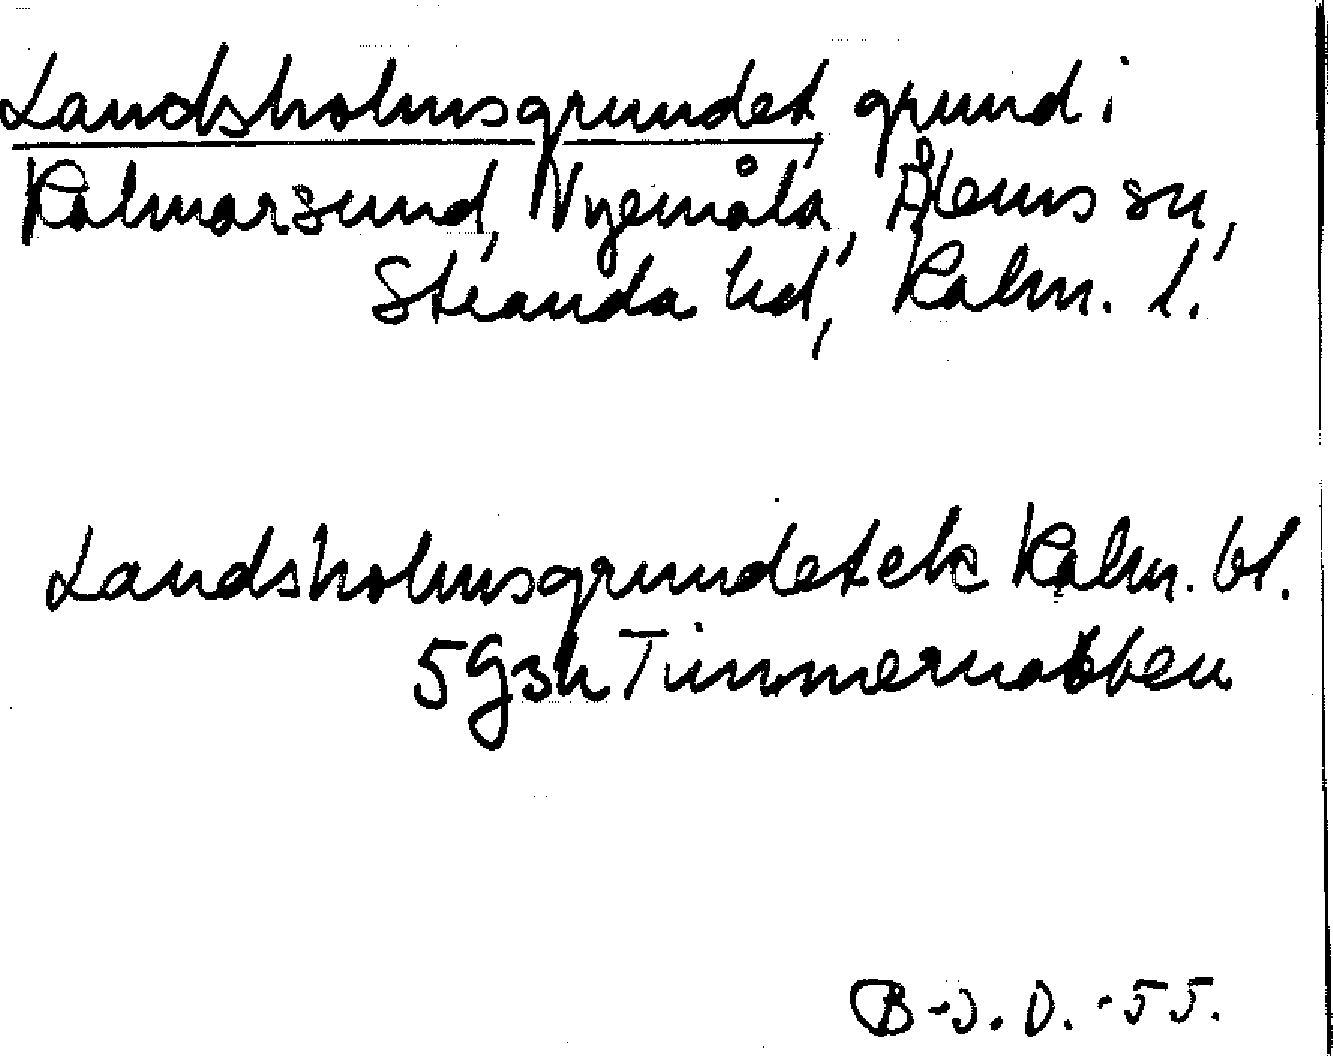 Landsholmsgrundet, grund i
Kalmarsund, Nyemåla, Ålems sn,
Stranda hd, Kalm. l.
Landsholmsgrundet ek Kalm. bl.
5G3h Timmernabben
B-J. O. -55.